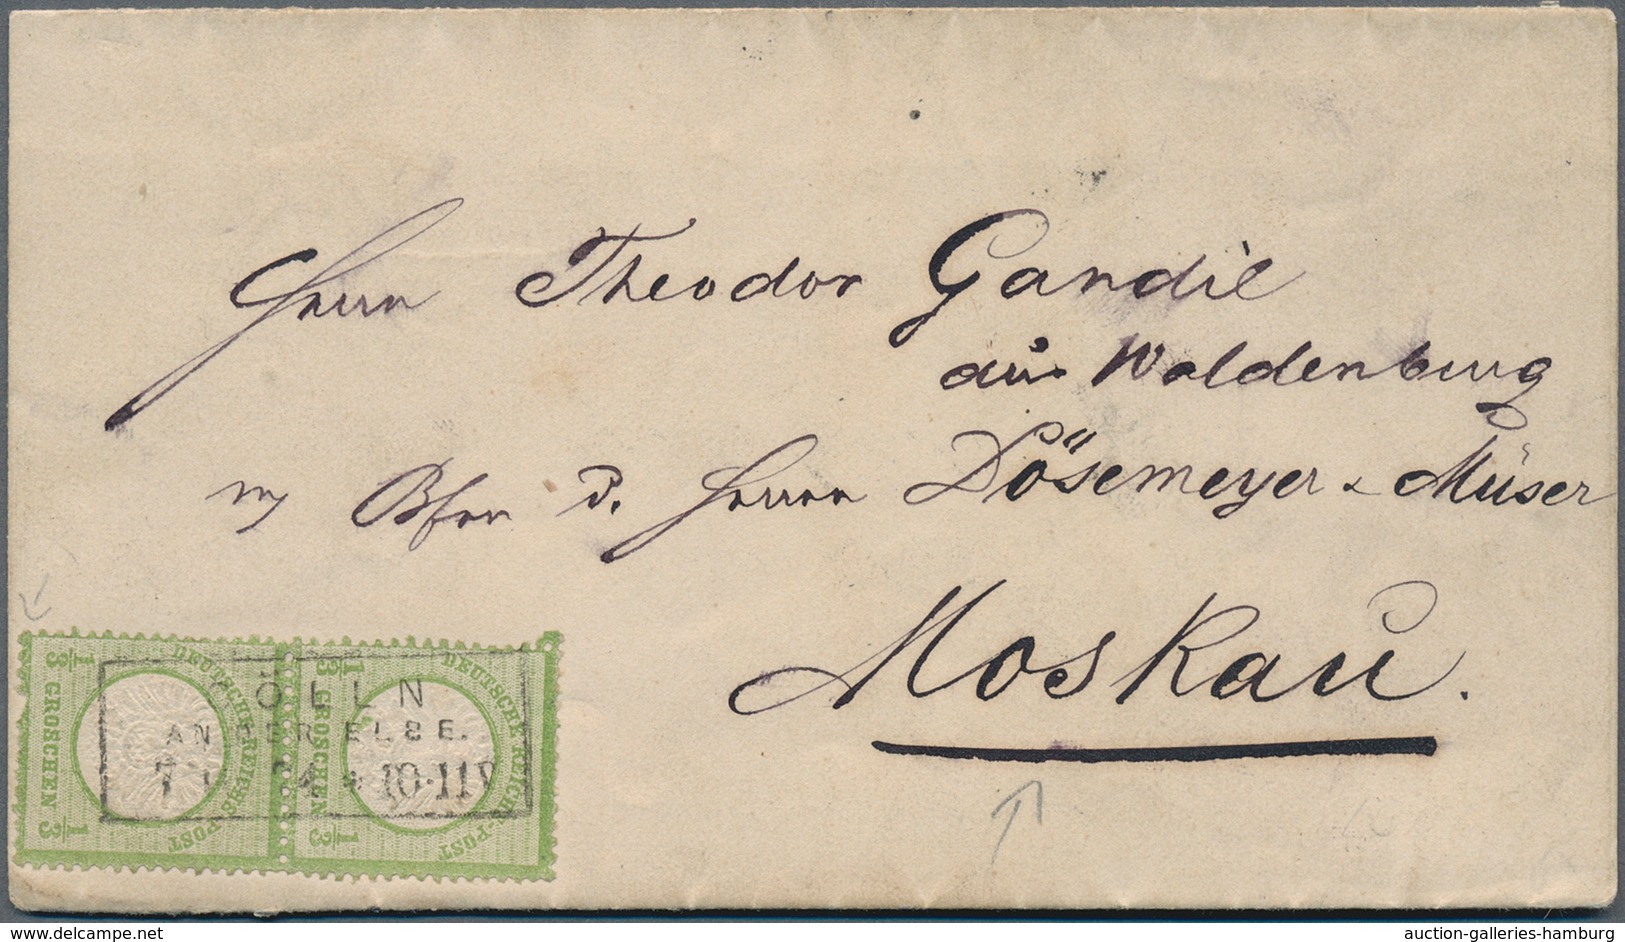 Herrn Theodor Gandil
aus Waldenburg
Adr d. Herren Dösemeyer & Müser
Moskau.
1/3 GROSCHEN 1/3
DEUTSCHE REICHS-POST
1/3 GROSCHEN 1/3
DEUTSCHE REICHS-POST
CÖLLN
AN DER ELBE.
7 * 10-11V
www.delcampe.net
auction-galleries-hamburg